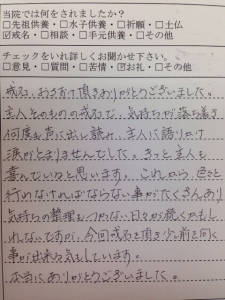 当院では何をされましたか?
□先祖供養・□水子供養・□祈願・□土仏
☑戒名・□相談・□手元供養・□その他
チェックをいれ詳しくお聞かせ下さい。
□意見・□質問・□苦情・☑お礼・□その他
戒名、おさずけ頂きありがとうございました。
主人そのものの戒名で、気持ちが落ち着き
何度も声に出し読み、主人に語りかけ
涙がとまりませんでした。きっと主人も
喜んでいると思います。これから、色々と
行わなければならない事がたくさんあり
気持ちの整理もつかない日々が続くかもし
れないですが、今回戒名を頂き少し前を向く
事が出来る気もしています。
本当にありがとうございました。